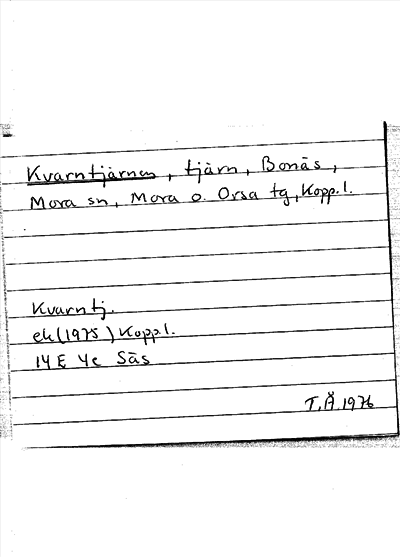 Kvarntjärnen, tjärn, Bonäs,
Mora sn, Mora o. Orsa tg, Kopp.l.
Kvarntj.
ek (1975) Kopp.l.
14 E 4c Sås
T.Å. 1976